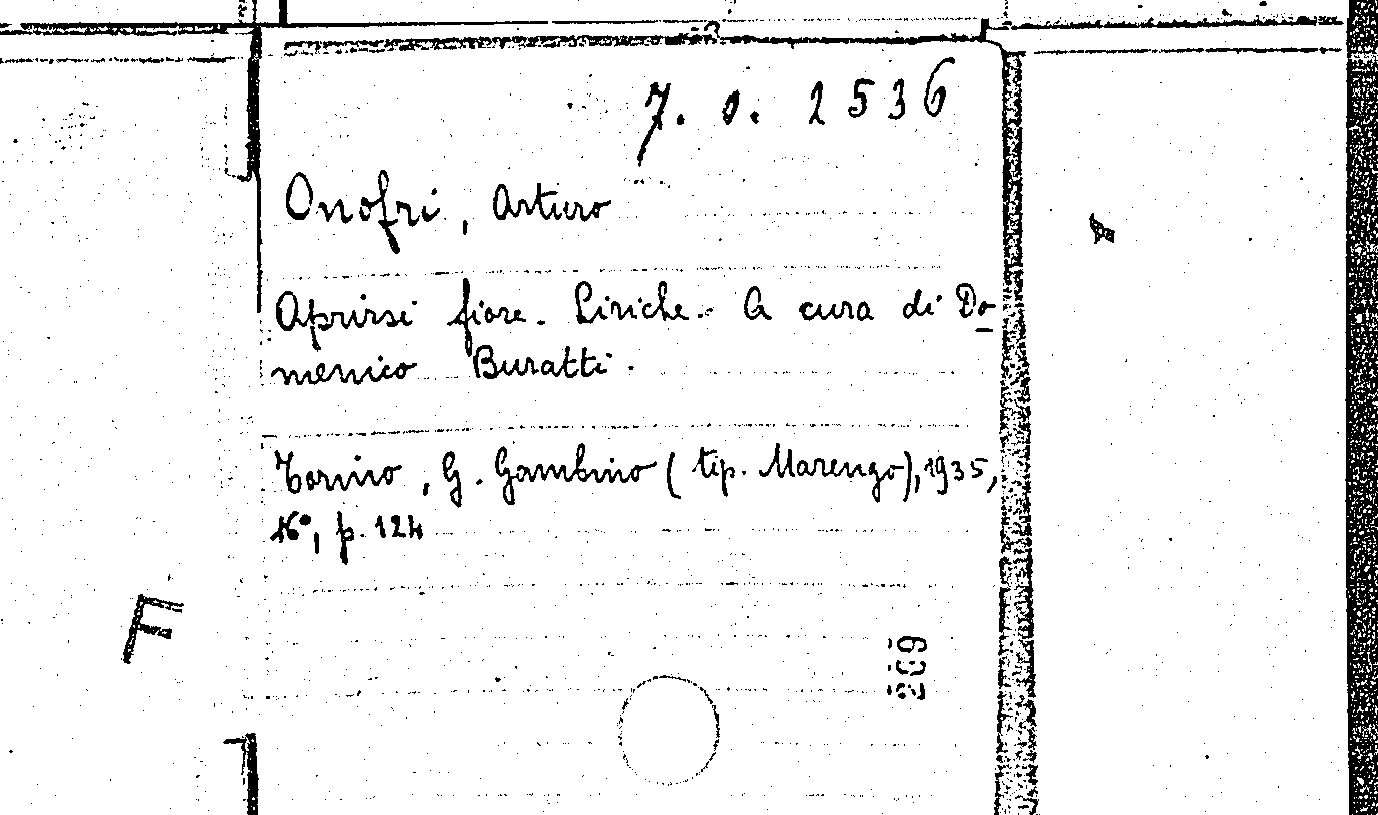 7. 0. 2536
Onofri, Arturo
Aprirsi fiore. Liriche. A cura di Do
menico Buratti.
Torino, G. Gambino (tip. Marengo), 1935,
16°, p. 124
F
269